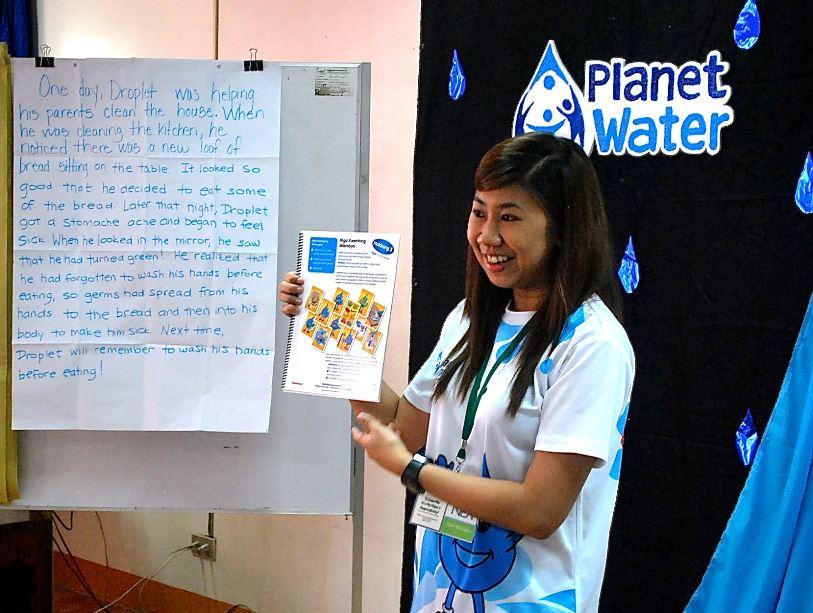 One day, Droplet was helping
his parents clean the house. When
he was cleaning the kitchen, he
noticed there was a new loaf of
bread sitting on the table. It looked so
good that he decided to eat some
of the bread. Later that night, Droplet
got a stomache ache and began to feel
sick. When he looked in the mirror, he saw
that he had turned green! He realized that
he had forgotten to wash his hands before
eating, so germs had spread from his
hands to the bread and then into his
body to make him sick. Next time,
Droplet will remember to wash his hands
before eating!
Mga Kwentong
Planet
Water